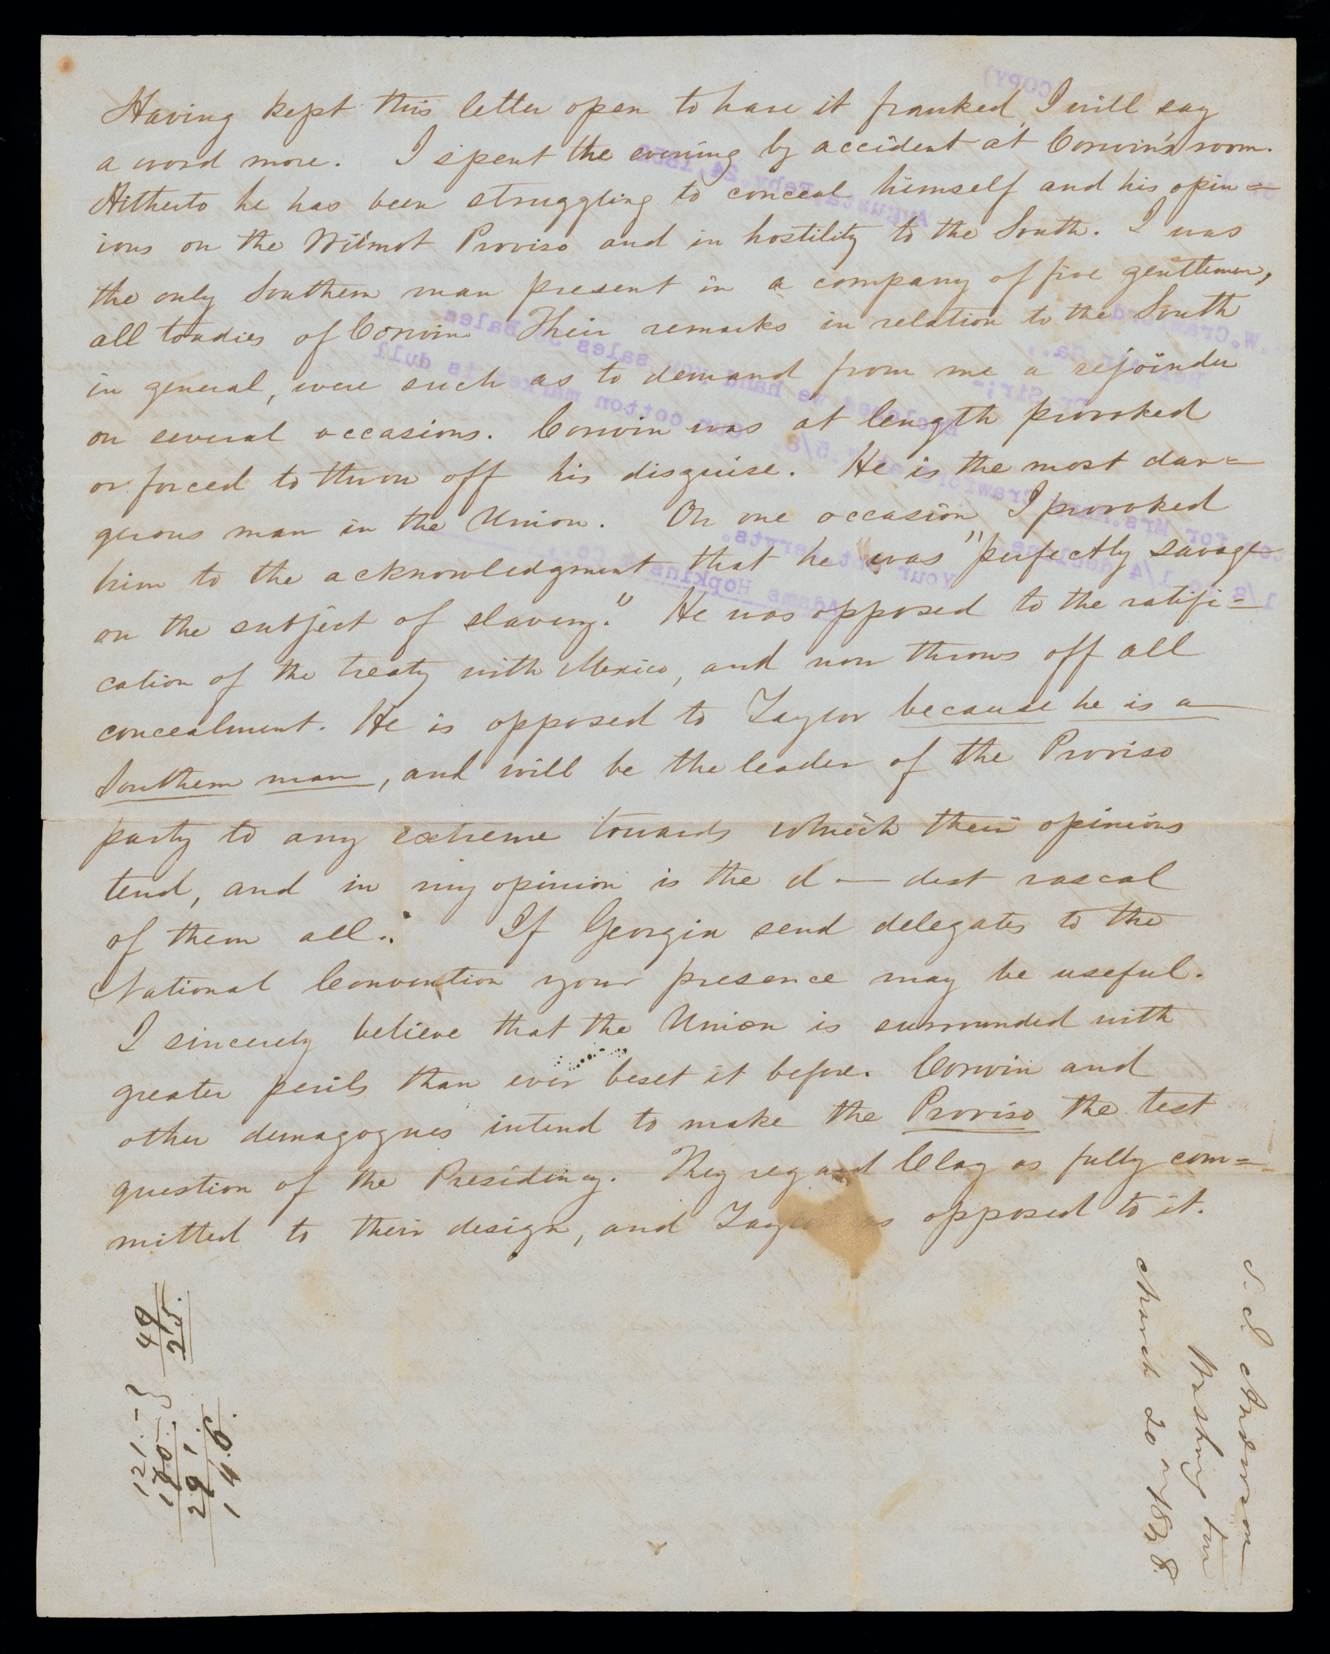 Having kept this letter open to have it franked I will say
a word more. I spent the evening by accident at Corwin's room.
Hitherto he has been struggling to conceal himself and his opin=
ions on the Wilmot Proviso and in hostility to the South. I was
the only Southern man present in a company of five gentlemen,
all toadies of Corwin Their remarks in relation to the South
in general, were such as to demand from me a rejoinder
on several occasions. Corwin was at length provoked
or forced to throw off his disguise. He is the most dan=
gerous man in the Union. On one occasion I provoked
him to the acknowledgment that he was "perfectly savage
on the subject of slavery." He was opposed to the ratifi=
cation of the treaty with Mexico, and now throws off all
concealment. He is opposed to Taylor because he is a
Southern man, and will be the leader of the Proviso
party to any extreme towards which their opinions
tend, and in my opinion is the d—dest rascal
of them all. If Georgia send delegates to the
National Convention your presence may be useful.
I sincerely believe that the Union is surrounded with
greater perils than ever beset it before. Corwin and
other demagogues intend to make the Proviso the test
question of the Presidency. They regard Clay as fully com=
mitted to their design, and Taylor as opposed to it.
Anderson
Washington
March 20 1848.
49
25.
121.-
170.
291.
146.
(COPY)
Augusta
Feby.24,
W.Crawford
Dr Sir;-
we hand you sales
cotton market is dull
for Mrs.
1/8 to 1/4 decline
your
Adams Hopkins & Co.,